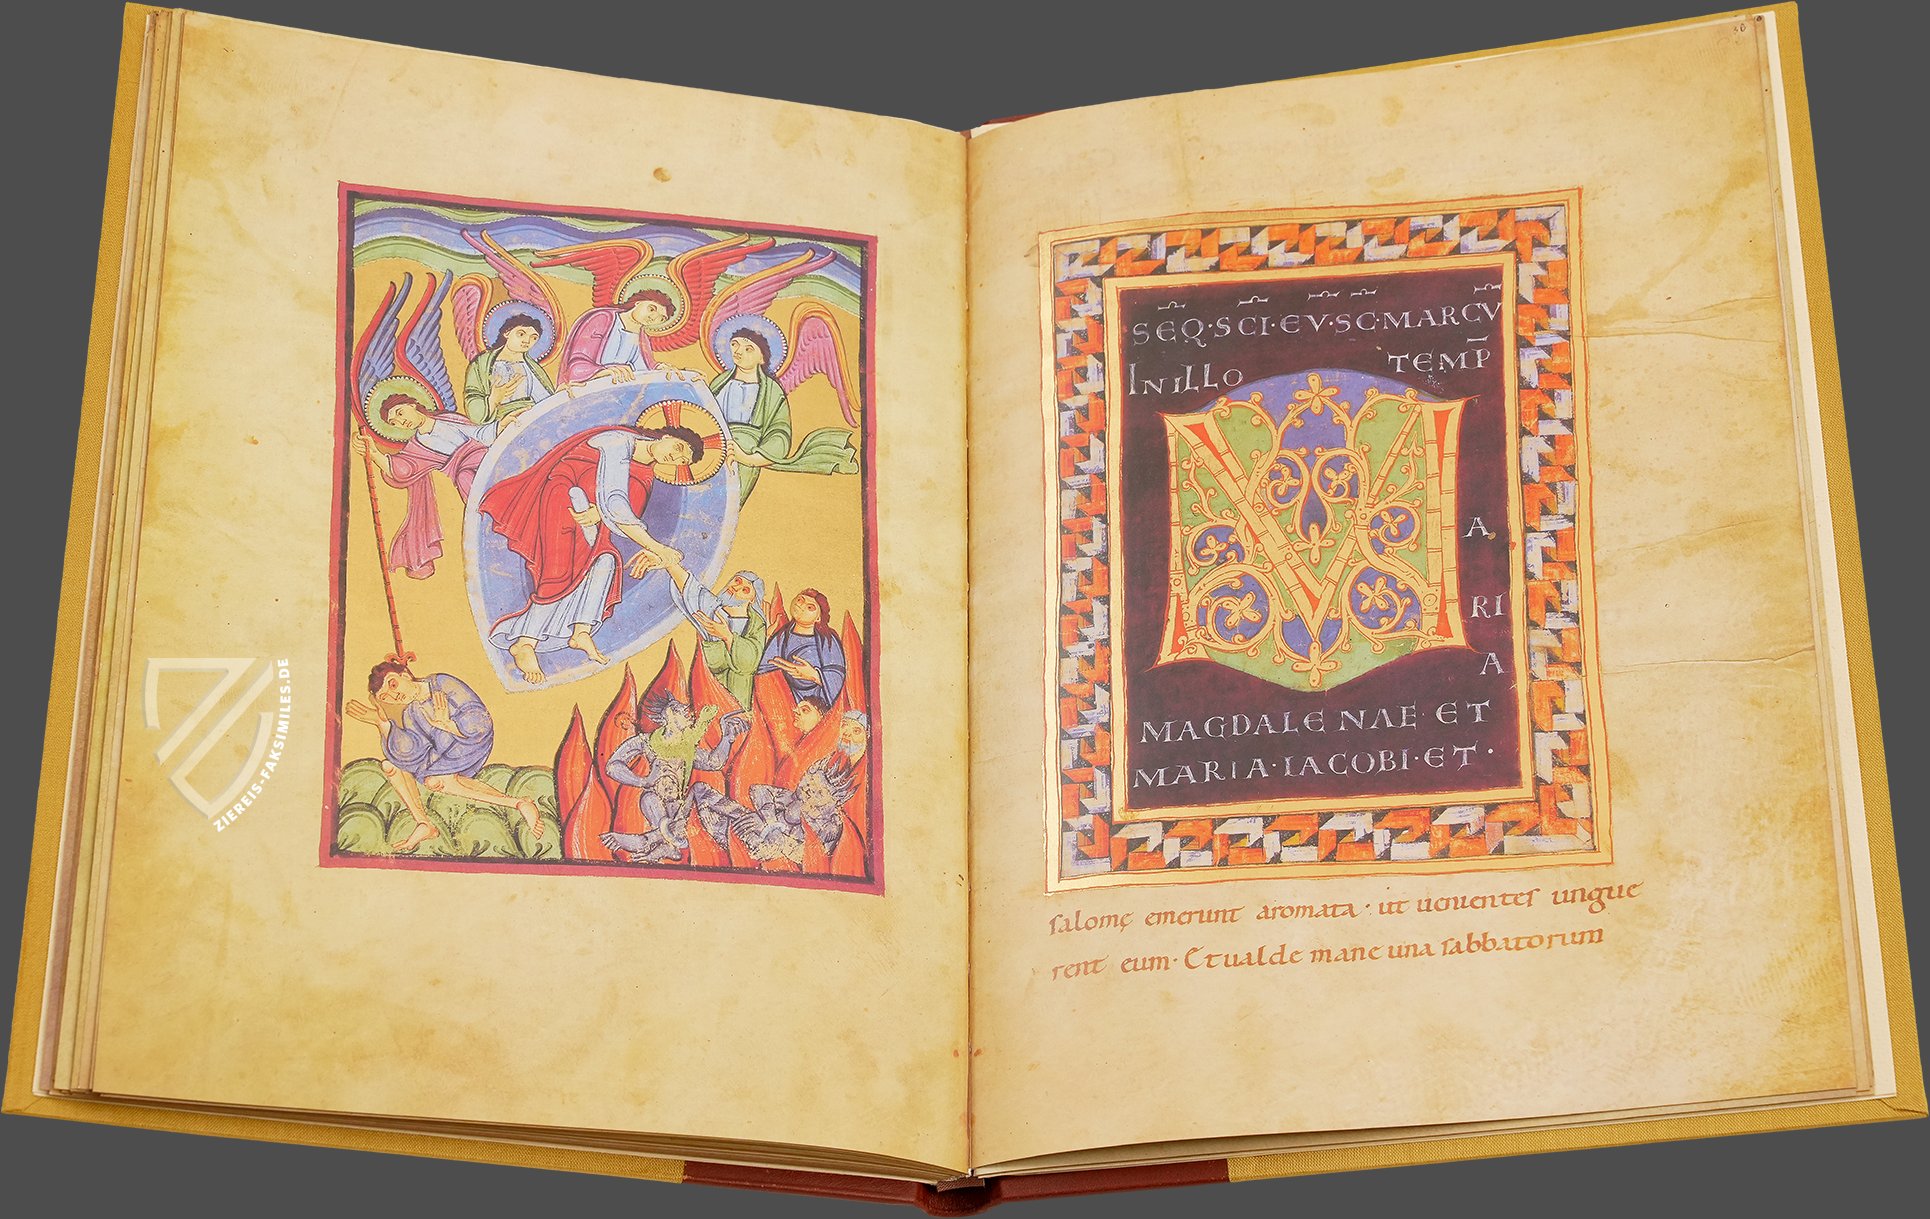 ZIEREIS-FAKSIMILES.DE
38
SEQ·SCI·EV·SC·MARCV̅
IN ILLO TEMP̅
M
A
RI
A
MAGDALENAE ET
MARIA·IACOBI·ET·
salomę emerunt aromata· ut uenientes ungue
rent eum· Et ualde mane una sabbatorum